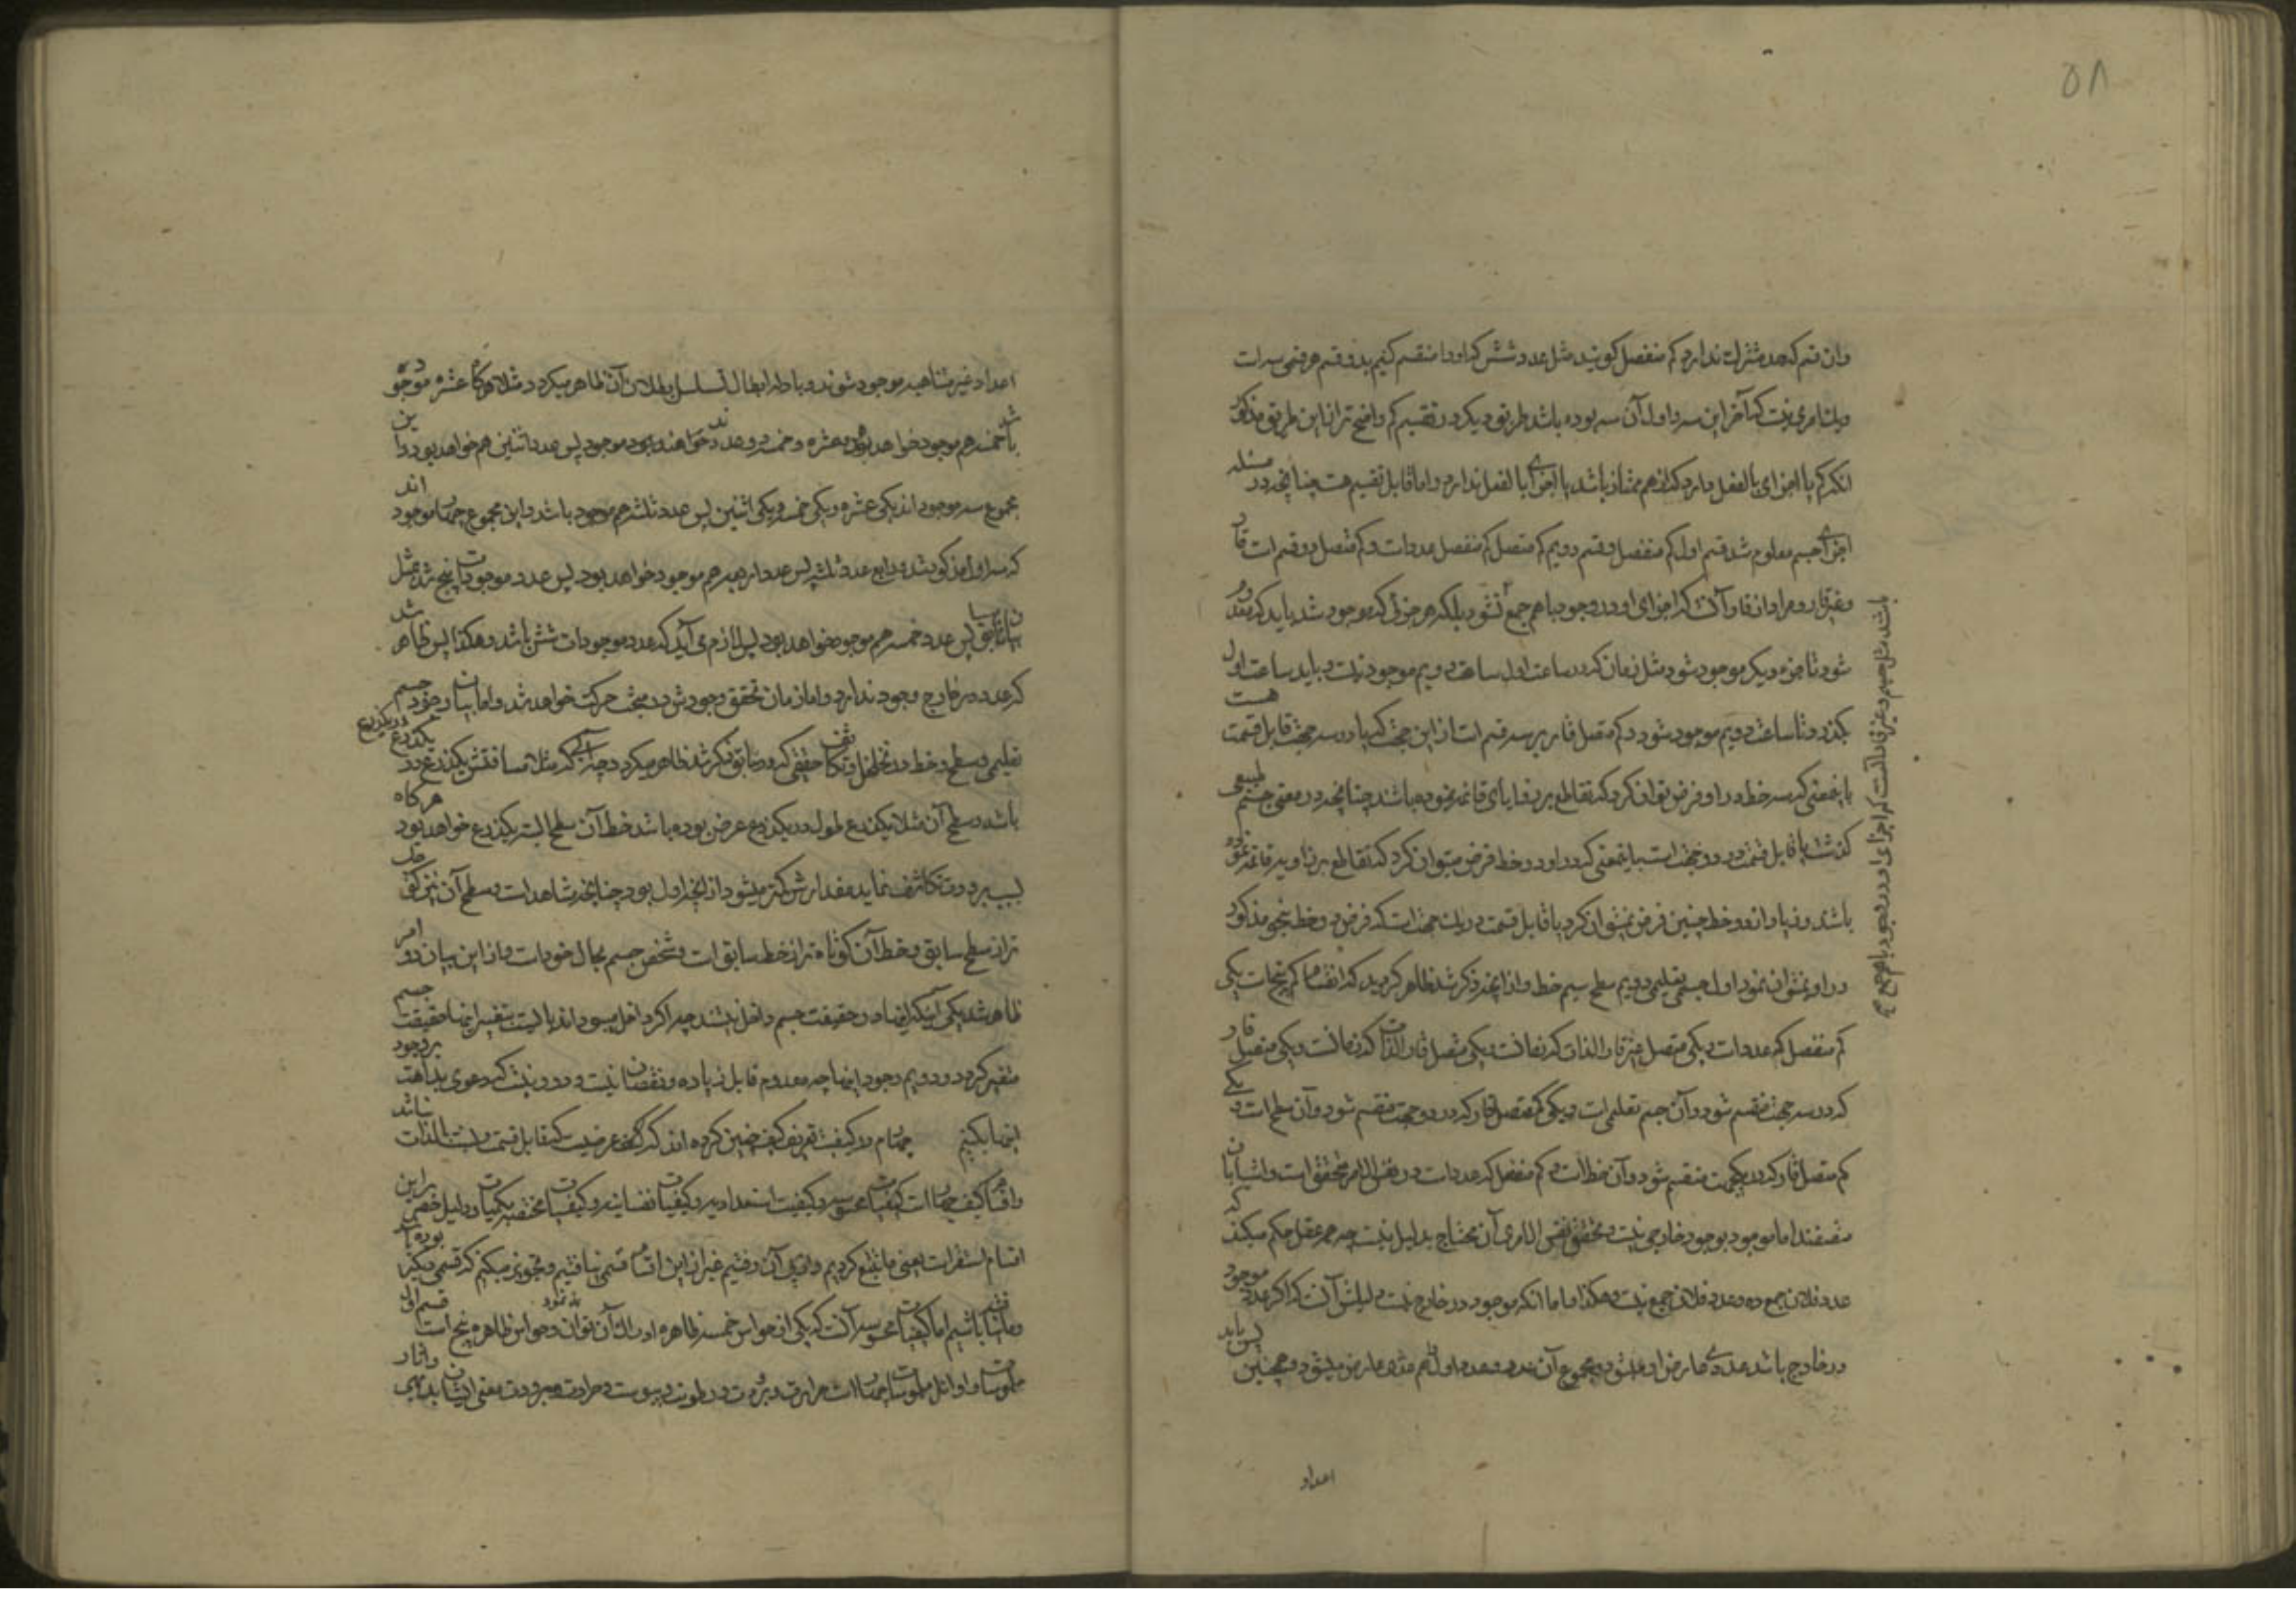 ۵۸
وان قسم که حد مشترک ندارد کم منفصل گویند مثل عدد شش که او را منقسم کنیم بدو قسم هر قسمی سه است
و یک امری نیست که آخر این سه و اول آن سه بوده باشد طریق دیگر در تقسیم کم واضح تر از این طریق مذکور
انکه کم یا اجزای بالفعل دارد که از هم ممتاز باشد یا اجزای بالفعل ندارد و اما قابل تقسیم هست چنانچه در مسئله
اجزای جسم معلوم شد قسم اول کم منفصل و قسم دویم کم متصل کم منفصل عدد است و کم متصل دو قسم است قار
و غیر قار و مراد از قار آنست که اجزای او در وجود با هم جمع نشود بلکه هر جزئی که موجود شد باید که معدوم
باشد مثل جسم و غیر قار آنست که اجزای او در وجود با هم جمع
شود تا جزء دیگر موجود شود مثل زمان که در ساعت اول ساعت دویم موجود نیست و باید ساعت اول
بگذرد تا ساعت دویم موجود شود و کم متصل قار بر سه قسم است از این جهت که یا در سه جهت قابل قسمت هست
باینمعنی که سه خط در او فرض توان کرد که تقاطع بر زوایای قائمه نموده باشند چنانچه در معنی جسم طبیعی
گذشت یا قابل قسمت در دو جهت است باینمعنی که در او دو خط فرض میتوان کرد که تقاطع بر زاویه قائمه نموده
باشند و زیاد از دو خط چنین فرض نمیتوان کرد یا قابل قسمت در یک جهت است که فرض دو خط بنحو مذکور
در او نمیتوان نمود اول جسم تعلیمی دویم سطح سیم خط و از اینچه ذکر شد ظاهر گردید که اقسام کم پنج است یکی
کم منفصل که عدد است و یکی متصل غیر قار الذات که زمانست و یکی متصل قار
که در سه جهت منقسم شود و آن جسم تعلیمی است و یکی کم متصل قار که در دو جهت منقسم شود و آن سطح است و یکی
کم متصل قار که در یکجهت منقسم شود و آن خط است و کم منفصل که عدد است در نفس الامر محقق است و اشیا بان
متصفند اما موجود بوجود خارجی نیست و تحقق نفس الامری آن محتاج بدلیل نیست چه هر عقل حکم میکند که
عدد فلان جمع ده و عدد فلان جمع بیست و هکذا اما انکه موجود در خارج نیست دلیلش آنست که اگر عدد موجود
در خارج باشد عددی عارض او میشود و مجموع آن عدد و عدد اول هم عددی عارض میشود و همچنین پس باید
اعداد
اعداد غیر متناهیه موجود شوند و باطله ابطال تسلسل بطلان آن ظاهر میگردد مثلا هرگاه عشره موجود
باشد خمسه هم موجود خواهد بود و عشره و خمسه دو عدد خواهند بود موجود پس عدد اثنین هم خواهد بود و این
مجموع سه موجود اند یکی عشره و یکی خمسه و یکی اثنین پس عدد ثلثه هم موجود باشد و این مجموع چهار موجود اند
که سه اول مذکور شد و رابع عدد ثلثه پس عدد اربعه هم موجود خواهد بود پس عدد موجودات پنج شد بمثل
بیان سابق پس عدد خمسه هم موجود خواهد بود پس لازم می آید که عدد موجودات شش باشد و هکذا پس ظاهر شد
که عدد در خارج وجود ندارد و اما زمان تحقق وجودش در مبحث حرکت خواهد شد و اما بیان وجود جسم
تعلیمی و سطح و خط در تخلخل و تکاثف حقیقی که در سابق ذکر شد ظاهر میگردد چه آبی که مثلا مسافتش یکذرع در یکذرع
باشد و سطح آن مثلا یکذرع طول در یکذرع عرض بوده باشد خط آن سطح البته یکذرع خواهد بود هرگاه
بسبب برودت تکاثف نماید مقدارش کمتر میشود از انچه اول بود چنانچه مشاهد است و سطح آن نیز
تر از سطح سابق و خط آن کوتاه تر از خط سابق است و شخص جسم بحال خود است و از این بیان دو امر
ظاهر شد یکی آنکه اینها در حقیقت جسم داخل نیستند چه اگر داخل میبودند بایست بتغییر اینها حقیقت جسم
متغیر گردد و دویم وجود اینها چه معدوم قابل زیاده و نقصان نیست و دور نیست که دعوی بداهت بر وجود
اینها بکنیم مقام در کیف تعریف کیف چنین کرده اند که عرضیست که قابل قسمت و نسبت بالذات نباشد
و اقسام کیف چهار است کیفیات محسوسه و کیفیت استعدادیه و کیفیات نفسانیه و کیفیات مختصه بکمیات و دلیل حصر بر این
اقسام استقراست یعنی ما تتبع کردیم و در پی آن رفتیم غیر از این اقسام قسمی نیافتیم و تجویز میکنیم که قسمی دیگر بوده باشد
و ما نیافته باشیم اما کیفیات محسوسه آنست که یکی از حواس خمسه ظاهره ادراک آن توان نمود و حواس ظاهره پنج است قسم اول
ملموسات و اوائل ملموسات چهار است حرارت و برودت و رطوبت و یبوست و حرارت و برودت معنی ایشان بدیهی و آثار